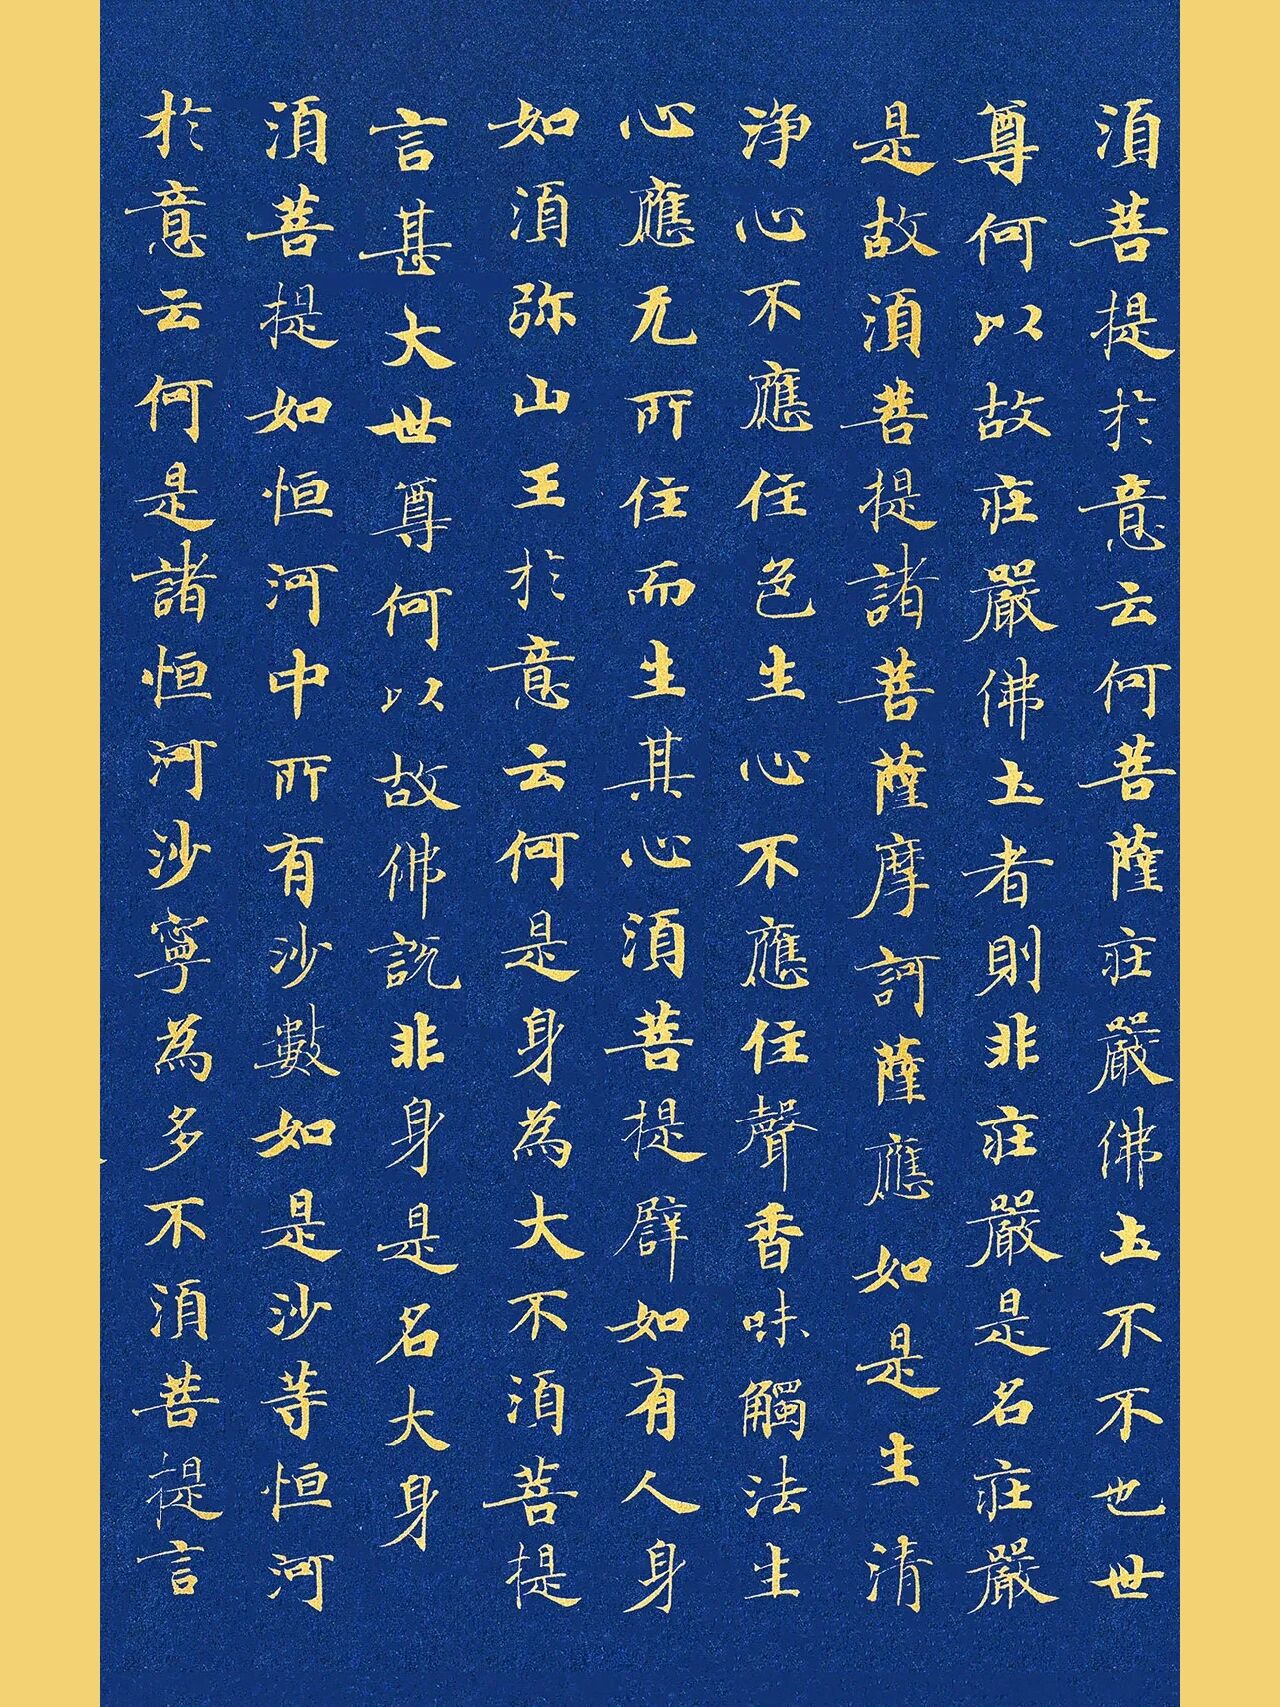 湏菩提於意云何菩薩莊嚴佛土不不也世
尊何以故莊嚴佛土者則非莊嚴是名莊嚴
是故湏菩提諸菩薩摩訶薩應如是生清
浄心不應住色生心不應住聲香味觸法生
心應无所住而生其心湏菩提辟如有人身
如湏弥山王於意云何是身為大不湏菩提
言甚大世尊何以故佛説非身是名大身
湏菩提如恒河中所有沙數如是沙等恒河
於意云何是諸恒河沙寧為多不湏菩提言